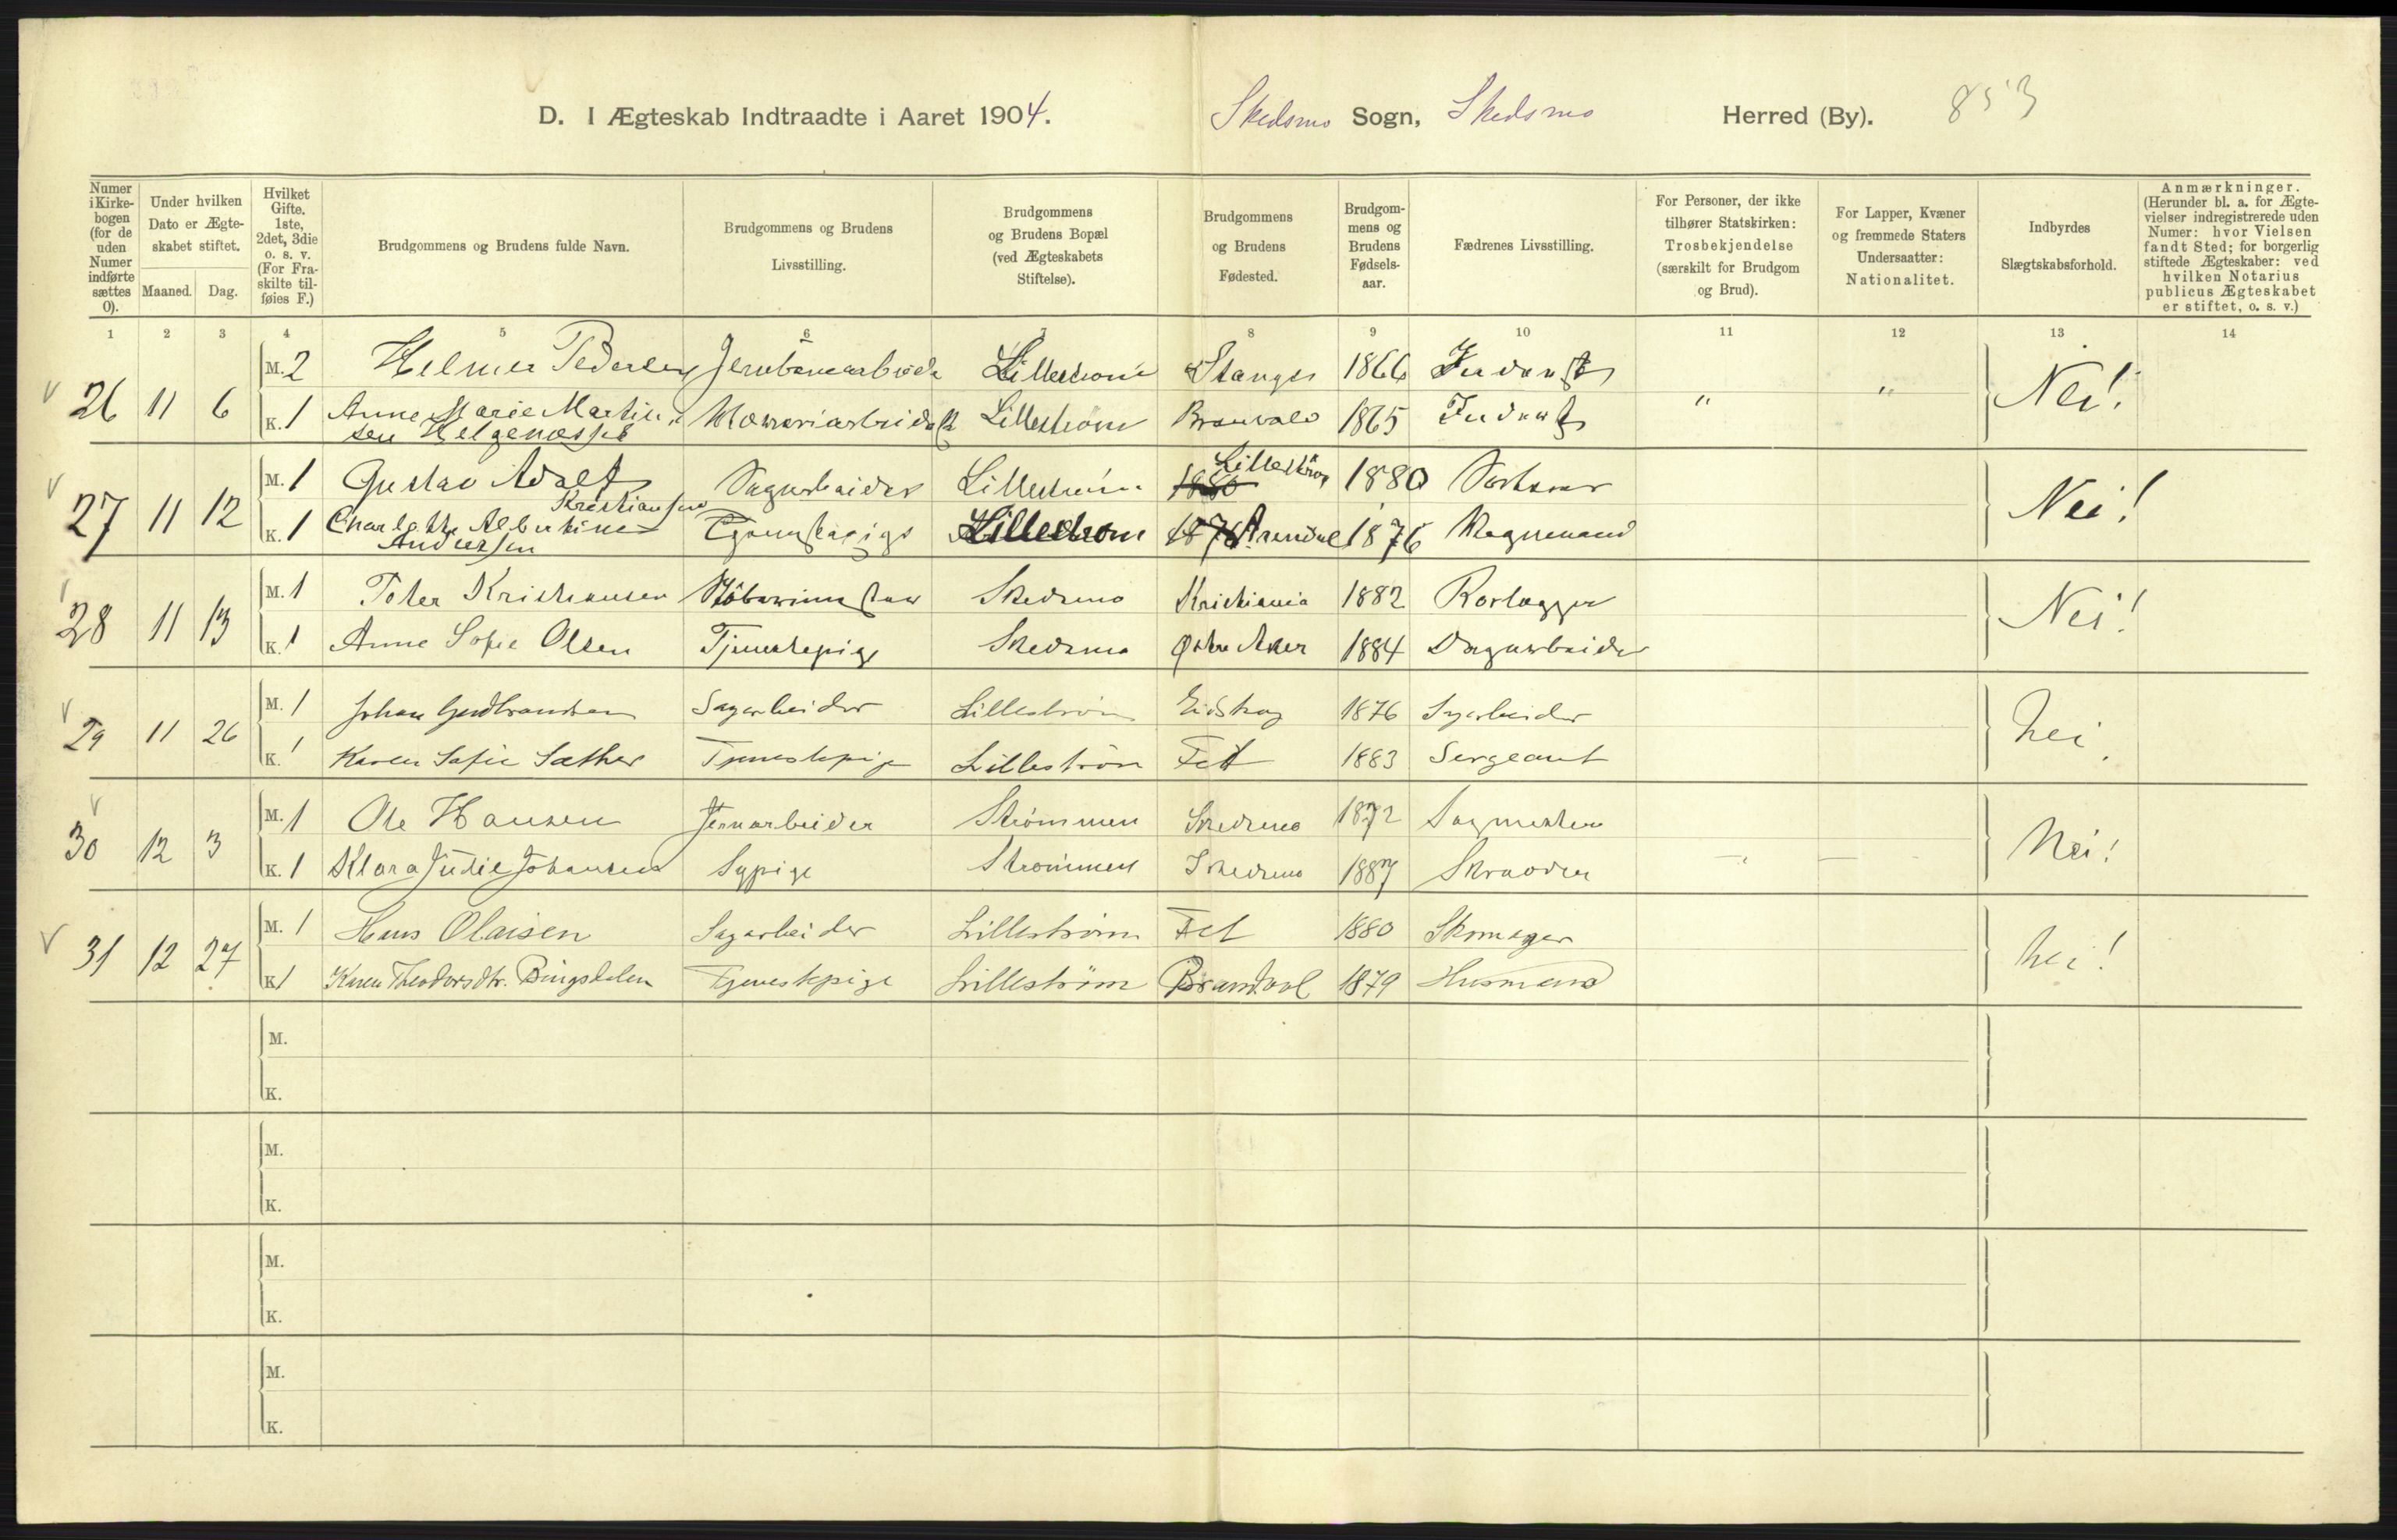 D. I Ægteskab Indtraadte i Aaret 1904. Skedsmo Sogn, Skedsmo Herred (By). 853
Numer i Kirke-bogen (for de uden Numer indførte sættes 0).
Under hvilken Dato er Ægte-skabet stiftet.
Maaned. Dag.
Hvilket Gifte. 1ste, 2det, 3die o. s. v. (For Fra-skilte til-føies F.)
Brudgommens og Brudens fulde Navn.
Brudgommens og Brudens Livsstilling.
Brudgommens og Brudens Bopæl (ved Ægteskabets Stiftelse).
Brudgommens og Brudens Fødested.
Brudgom-mens og Brudens Fødsels-aar.
Fædrenes Livsstilling.
For Personer, der ikke tilhører Statskirken: Trosbekjendelse (særskilt for Brudgom og Brud).
For Lapper, Kvæner og fremmede Staters Undersaatter: Nationalitet.
Indbyrdes Slægtskabsforhold.
Anmærkninger. (Herunder bl. a. for Ægte-vielser indregistrerede uden Numer: hvor Vielsen fandt Sted; for borgerlig stiftede Ægteskaber: ved hvilken Notarius publicus Ægteskabet er stiftet, o. s. v.)
1 2 3 4 5 6 7 8 9 10 11 12 13 14
M. 2 Helmer Pedersen Lillestrøm Stange 1866
26 11 6 Nei!
K. 1 Anne Marie Martin Lillestrøm 1865 " "
M. 1 Gustav Adolf Kristiansen Sagarbeider Lillestrøm 1880 Lillestrøm 1880
27 11 12 Nei!
K. 1 Charlotte Albertine Andersen Tjenestepige Lillestrøm 1876 Arendal 1876
M. 1 Peter Kristiansen Skedsmo Kristiania 1882
28 11 13 Nei!
K. 1 Anne Sofie Olsen Tjenestepige Skedsmo Østre Aker 1884 Dagarbeider
M. 1 Johan Gudbrandsen Sagarbeider Lillestrøm Eidskog 1876
29 11 26 Nei.
K. 1 Karen Sofie Sæther Tjenestepige Lillestrøm Fet 1883 Sergeant
M. 1 Ole Hansen Jernarbeider Strømmen Skedsmo 1872 Sagmester
30 12 3 Nei!
K. 1 Klara Judie Johansen Sypige Strømmen Skedsmo 1887 Skrædder
M. 1 Hans Olaisen Sagarbeider Lillestrøm Fet 1880 Skomager
31 12 27 Nei!
K. 1 Karen Theodorsdtr. Bingsdalen Tjenestepige Lillestrøm Brandvol 1879 Husmand
M.
K.
M.
K.
M.
K.
M.
K.